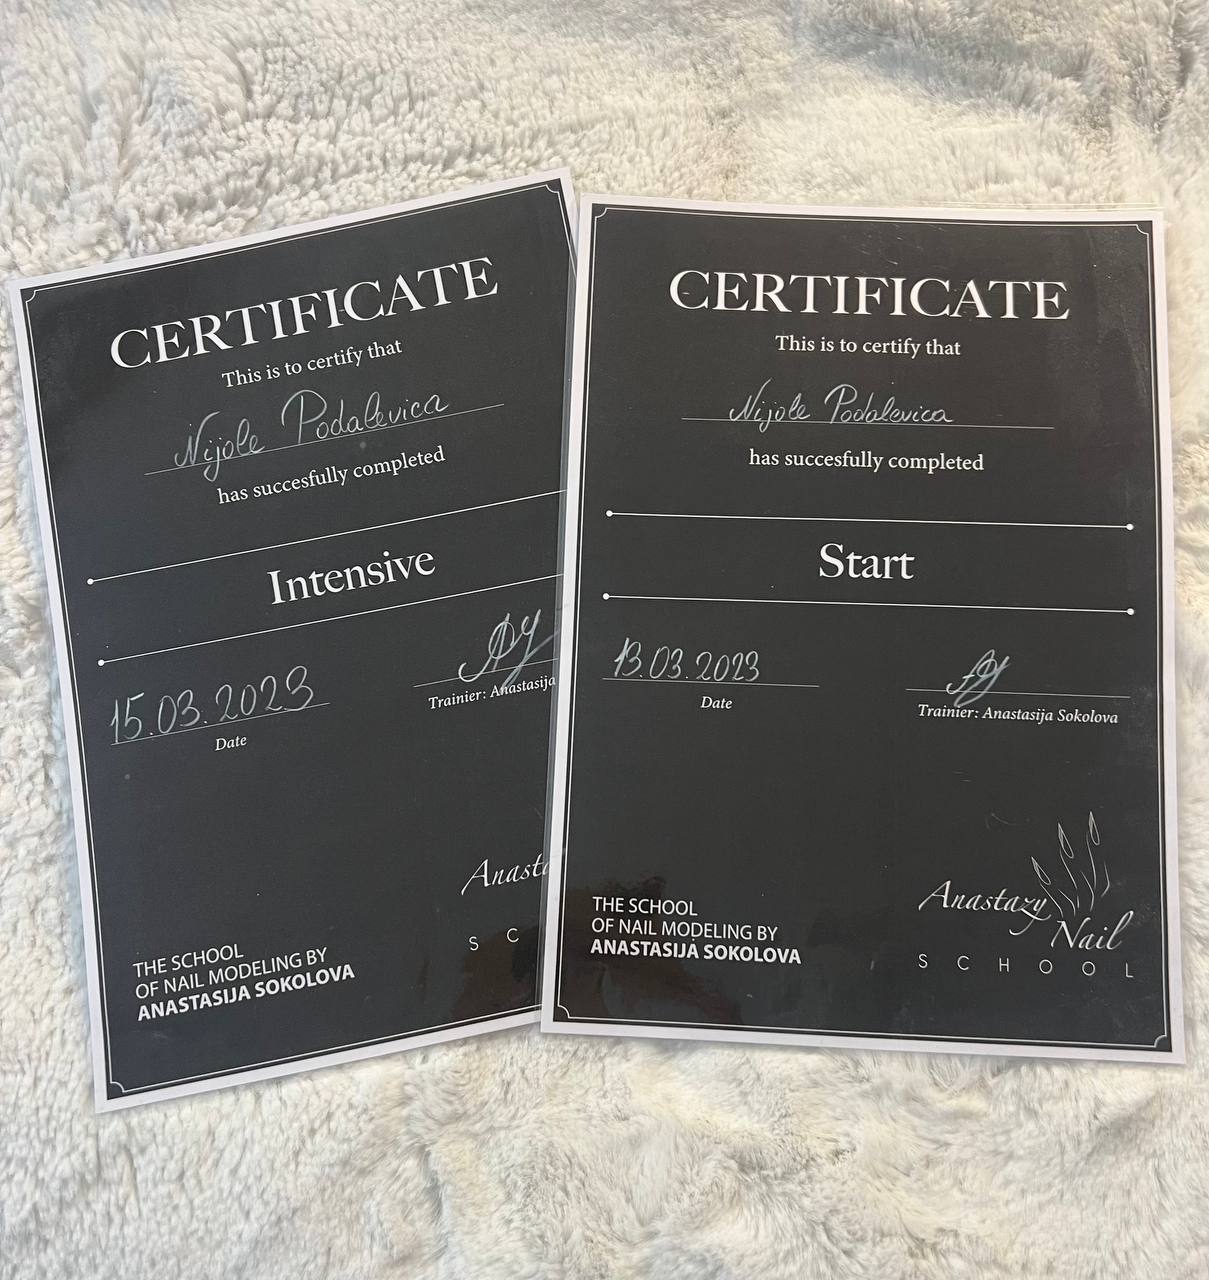 CERTIFICATE
This is to certify that
Nijole Podalevica
has succesfully completed
Intensive
15.03.2023
Date
Trainier: Anastasija
THE SCHOOL
OF NAIL MODELING BY
ANASTASIJA SOKOLOVA
Anasta
S C
CERTIFICATE
This is to certify that
Nijole Podalevica
has succesfully completed
Start
13.03.2023
Date
Trainier: Anastasija Sokolova
THE SCHOOL
OF NAIL MODELING BY
ANASTASIJA SOKOLOVA
Anastazy
Nail
SCHOOL